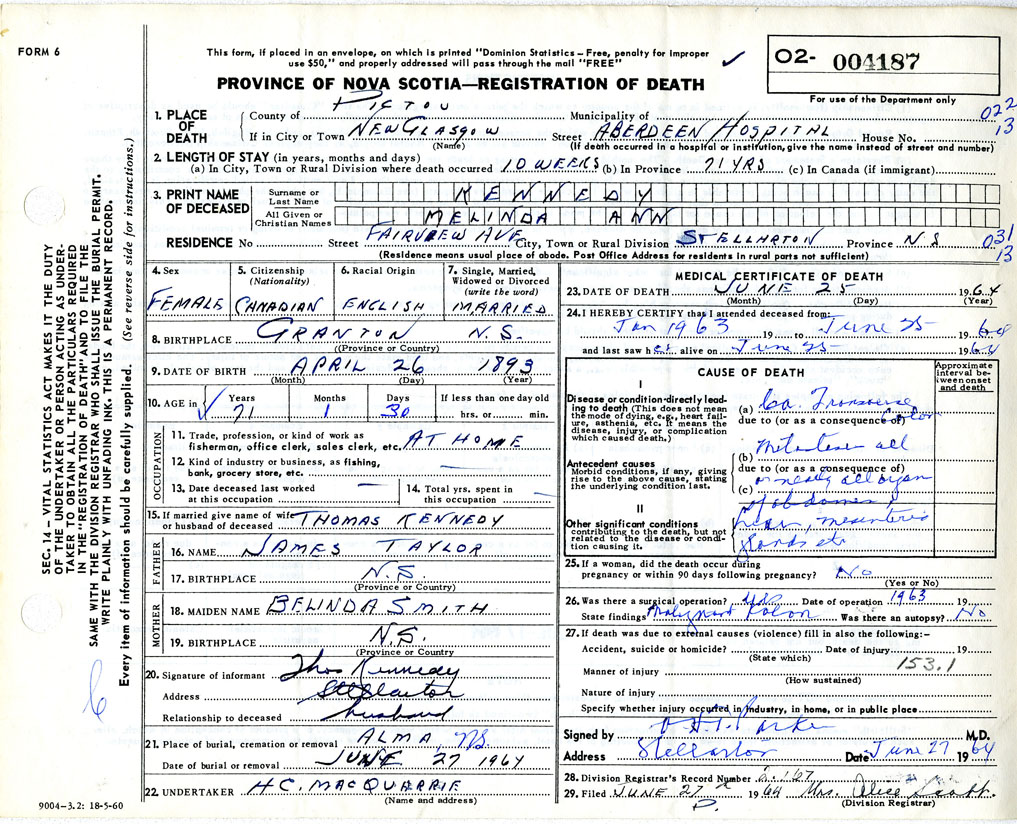 FORM 6
This form, if placed in an envelope, on which is printed "Dominion Statistics – Free, penalty for improper
use $50," and properly addressed will pass through the mail "FREE"
02- 004187
PROVINCE OF NOVA SCOTIA—REGISTRATION OF DEATH
For use of the Department only
1. PLACE OF DEATH
County of PICTOU Municipality of
022
13
If in City or Town NEW GLASGOW Street ABERDEEN HOSPITAL House No.
(Name) (If death occurred in a hospital or institution, give the name instead of street and number)
2. LENGTH OF STAY (in years, months and days)
(a) In City, Town or Rural Division where death occurred 10 WEEKS (b) In Province 71 YRS (c) In Canada (if immigrant)
3. PRINT NAME OF DECEASED
Surname or Last Name KENNEDY
All Given or Christian Names MELINDA ANN
RESIDENCE No Street FAIRVIEW AVE City, Town or Rural Division STELLARTON Province N S
031
13
(Residence means usual place of abode. Post Office Address for residents in rural parts not sufficient)
4. Sex
FEMALE
5. Citizenship (Nationality)
CANADIAN
6. Racial Origin
ENGLISH
7. Single, Married, Widowed or Divorced (write the word)
MARRIED
8. BIRTHPLACE GRANTON N.S.
((Province or Country)
9. DATE OF BIRTH APRIL 26 1893
(Month) (Day) (Year)
10. AGE in
Years Months Days If less than one day old
71 1 30 hrs. or min.
OCCUPATION
11. Trade, profession, or kind of work as
fisherman, office clerk, sales clerk, etc. AT HOME
12. Kind of industry or business, as fishing,
bank, grocery store, etc.
13. Date deceased last worked
at this occupation
14. Total yrs. spent in
this occupation
15. If married give name of wife
or husband of deceased THOMAS KENNEDY
FATHER
16. NAME JAMES TAYLOR
17. BIRTHPLACE N.S.
(Province or Country)
MOTHER
18. MAIDEN NAME BELINDA SMITH
19. BIRTHPLACE N.S.
(Province or Country
20. Signature of informant Thos Kennedy
Address Stellarton
Relationship to deceased husband
21. Place of burial, cremation or removal ALMA, NS.
Date of burial or removal JUNE 27 1964
22. UNDERTAKER H.C. MACQUARRIE
(Name and address)
MEDICAL CERTIFICATE OF DEATH
23. DATE OF DEATH JUNE 25 1964
(Month) (Day) (Year)
24. I HEREBY CERTIFY that I attended deceased from:
Jan 1963 19 to June 25 1964
and last saw her alive on June 25 1964
CAUSE OF DEATH
Approximate interval between onset and death
I
Disease or condition directly leading to death (This does not mean the mode of dying, e.g., heart failure, asthenia, etc. It means the disease, injury, or complication which caused death.)
(a) Ca. Transverse
due to (or as a consequence of) Colon
Antecedent causes
Morbid conditions, if any, giving rise to the above cause, stating the underlying condition last.
(b) all
due to (or as a consequence of)
(c) or nearly all organ
II
Other significant conditions
contributing to the death, but not related to the disease or condition causing it.
of abdomen
glands etc
25. If a woman, did the death occur during
pregnancy or within 90 days following pregnancy? No
(Yes or No)
26. Was there a surgical operation? Yes Date of operation 1963 19
State findings Malignant Colon Was there an autopsy? No
27. If death was due to external causes (violence) fill in also the following:–
Accident, suicide or homicide? Date of injury 19
(State which)
153.1
Manner of injury
(How sustained)
Nature of injury
Specify whether injury occurred in industry, in home, or in public place
Signed by Parker M.D.
Address Stellarton Date June 27 1964
28. Division Registrar's Record Number
29. Filed JUNE 27 1964 Mrs. Alice Scott.
(Division Registrar)
SEC. 14 – VITAL STATISTICS ACT MAKES IT THE DUTY
OF THE UNDERTAKER OR PERSON ACTING AS UNDER-
TAKER TO OBTAIN ALL THE PARTICULARS REQUIRED
IN THE "REGISTRATION OF DEATH" AND TO FILE THE
SAME WITH THE DIVISION REGISTRAR WHO SHALL ISSUE THE BURIAL PERMIT.
WRITE PLAINLY WITH UNFADING INK. THIS IS A PERMANENT RECORD.
Every item of information should be carefully supplied. (See reverse side for instructions.)
6
9004-3.2: 18-5-60